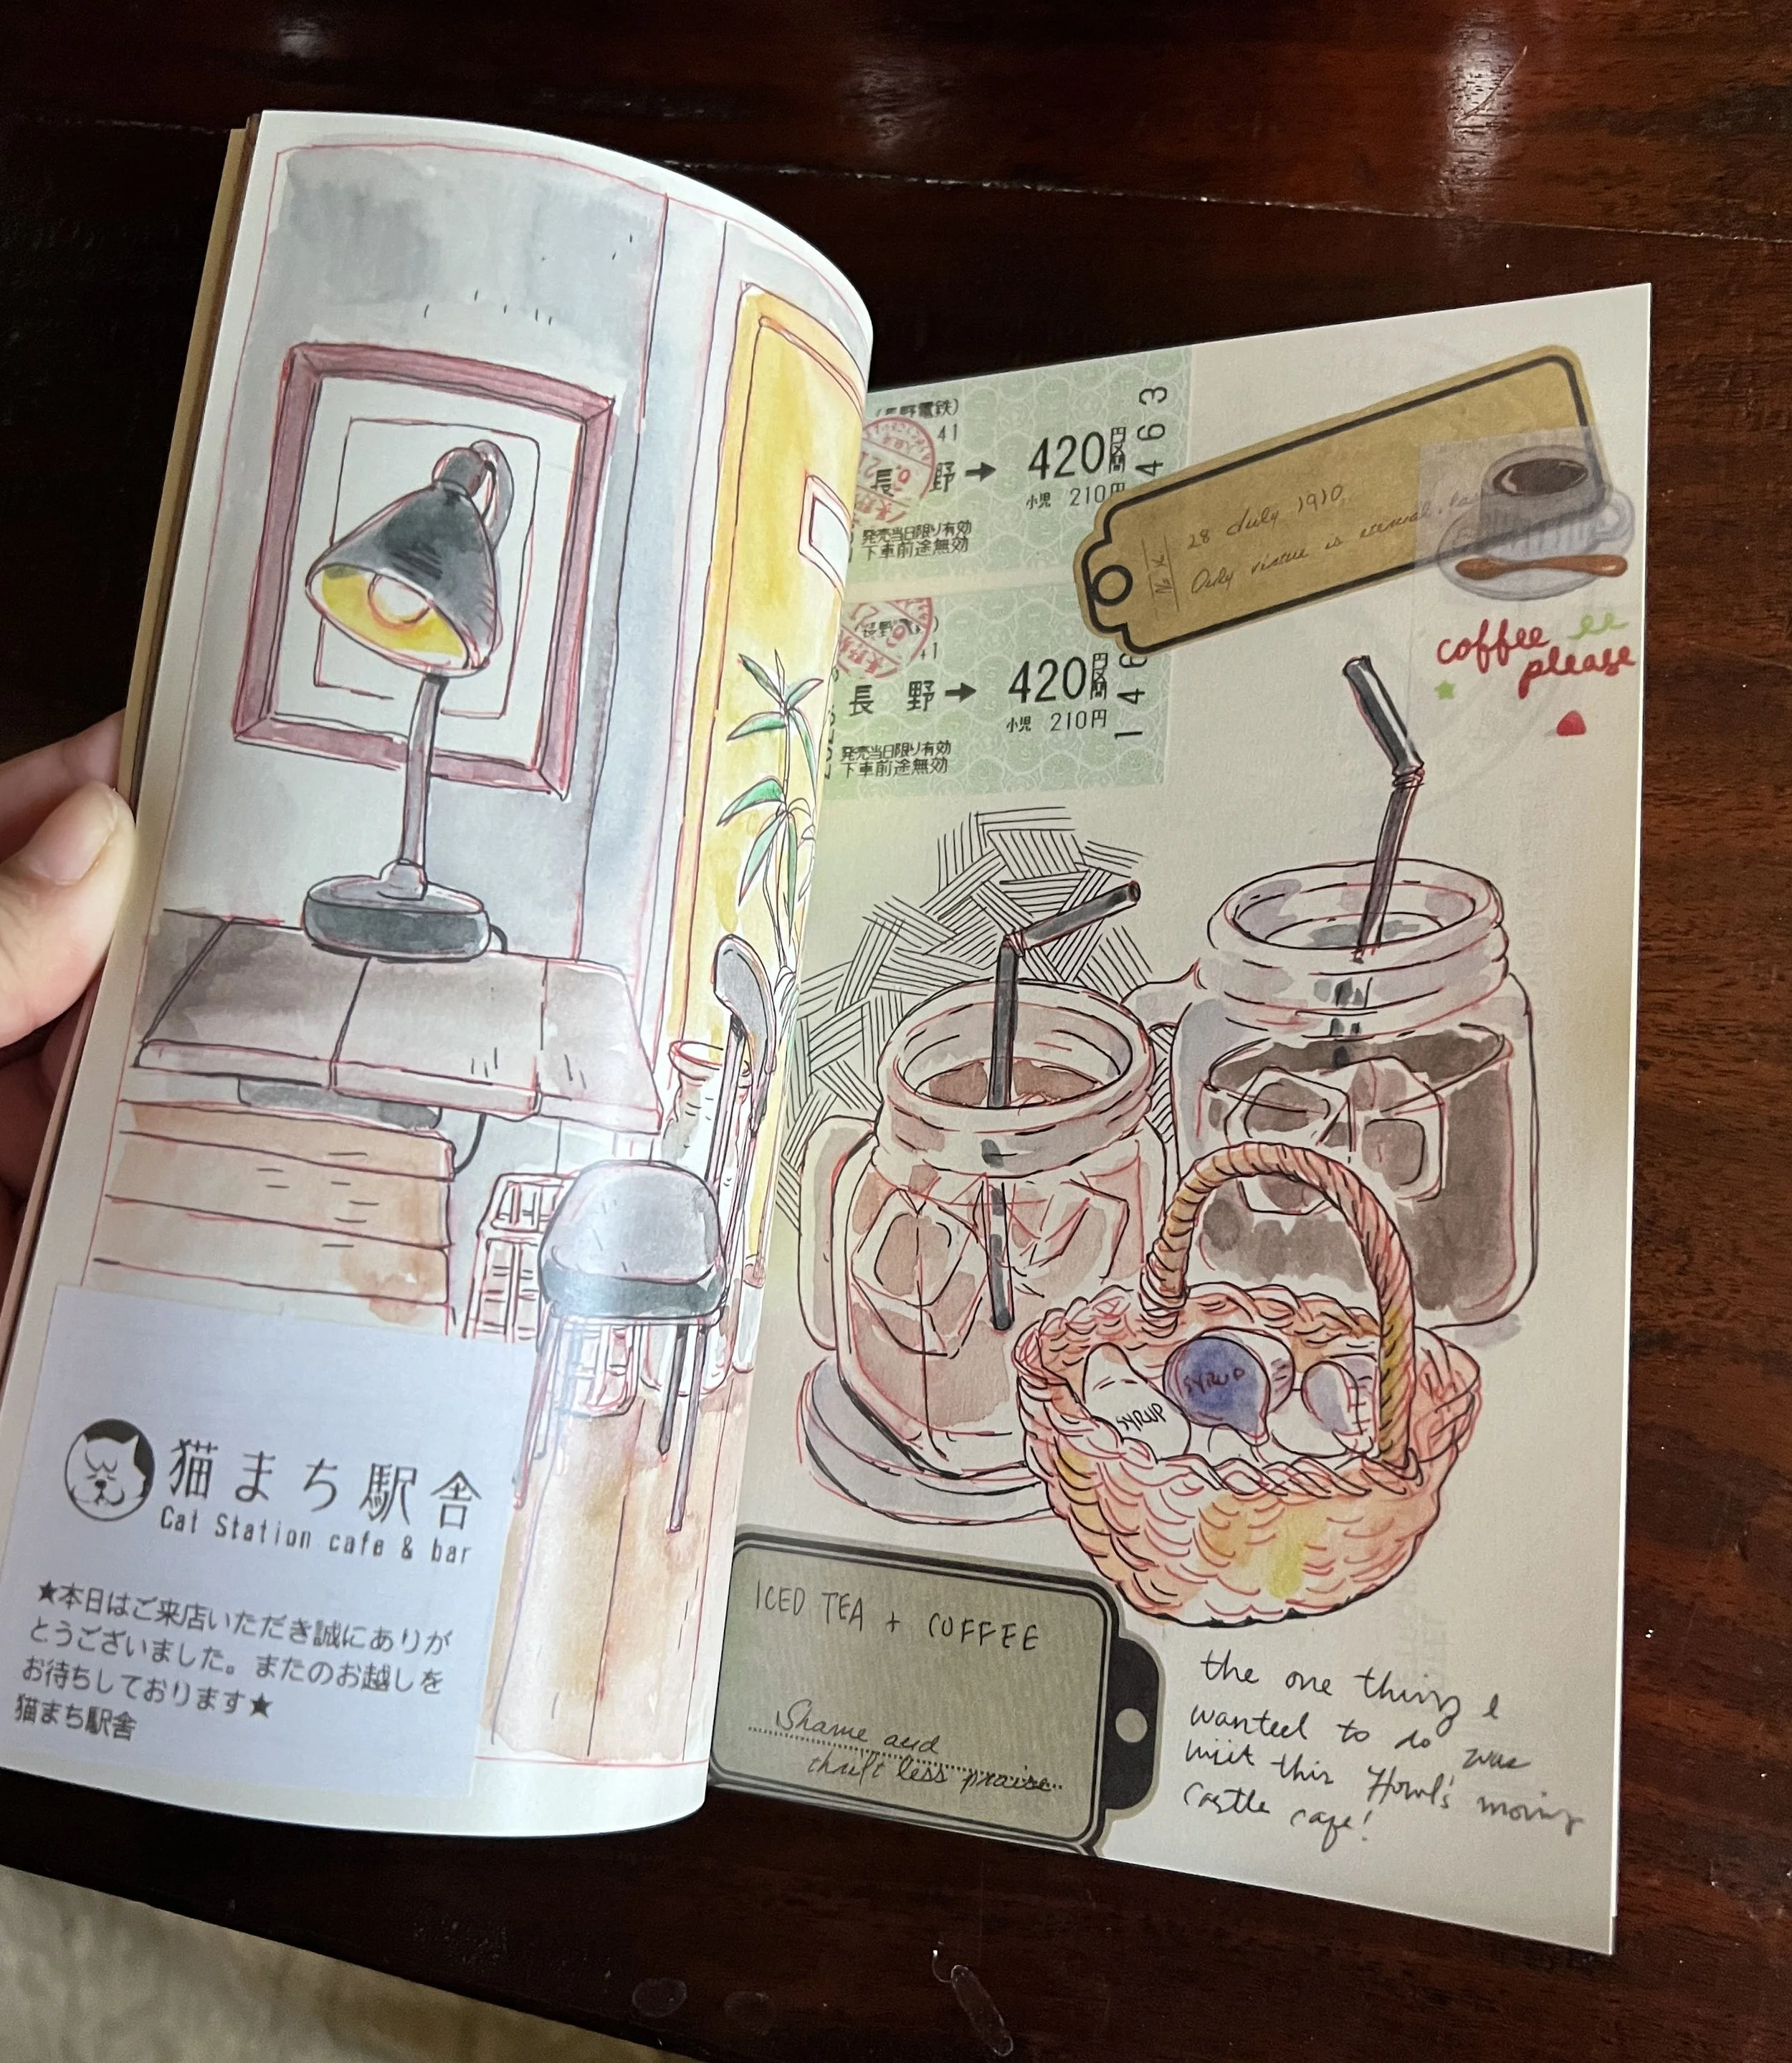 猫まち駅舎
Cat Station cafe & bar
★本日はご来店いただき誠にありが
とうございました。またのお越しを
お待ちしております★
猫まち駅舎
(長野電鉄)
41
長 野 → 420円区間
小児 210円
発売当日限り有効
下車前途無効
463
長 野 → 420円区間
小児 210円
発売当日限り有効
下車前途無効
146
28 July 1910
Only virtue is eternal
coffee
please
SYRUP
SYRUP
ICED TEA + COFFEE
Shame and
thrift less praise
the one thing I
wanted to do was
visit this Howl's moving
castle cafe!